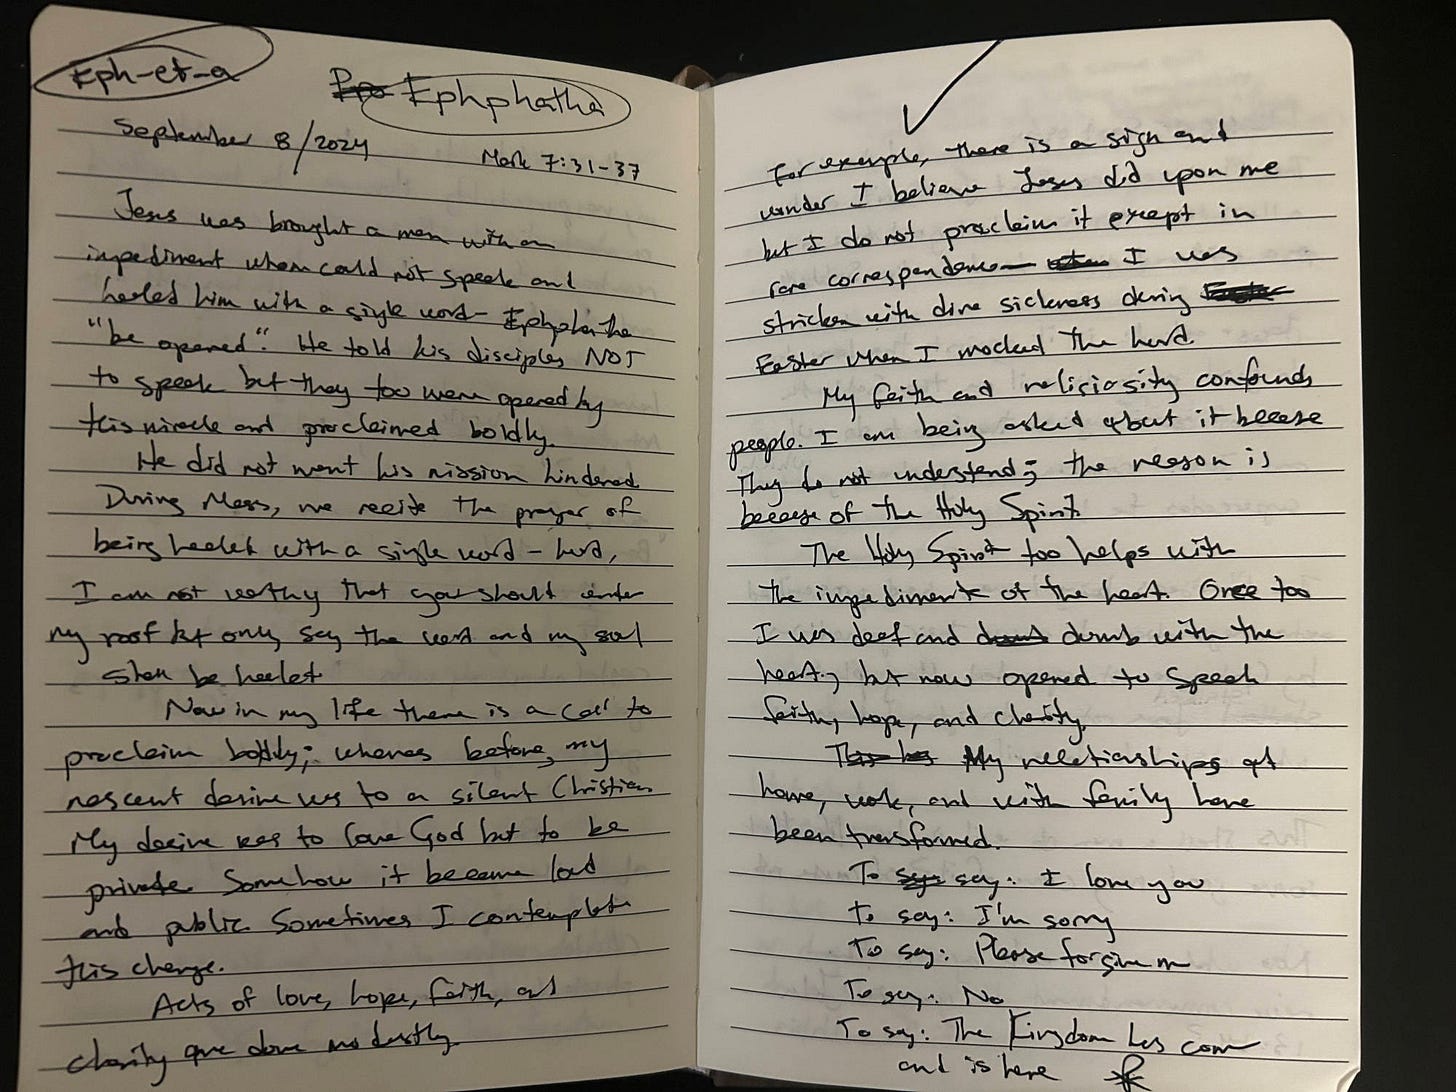 Eph-et-a
Ephphatha
September 8/2024
Mark 7:31-37
Jesus was brought a man with an
impediment whom could not speak and
healed him with a single word - Ephphatha
"be opened". He told his disciples NOT
to speak but they too were opened by
this miracle and proclaimed boldly.
He did not want his mission hindered
During Mass, we recite the prayer of
being healed with a single word - Lord,
I am not worthy that you should enter
my roof but only say the word and my soul
shall be healed.
Now in my life there is a call to
proclaim boldly; whereas before, my
nascent desire was to a silent Christian
My desire was to love God but to be
private. Somehow it became loud
and public. Sometimes I contemplate
this change.
Acts of love, hope, faith, and
charity are done modestly.
For example, there is a sign and
wonder I believe Jesus did upon me
but I do not proclaim it except in
rare correspondence— I was
stricken with dire sickness during
Easter when I mocked the Lord.
My faith and religiosity confounds
people. I am being asked about it because
They do not understand; the reason is
because of the Holy Spirit.
The Holy Spirit too helps with
the impediments of the heart. Once too
I was deaf and dumb with the
heart, but now opened to speak
faith, hope, and charity.
My relationships at
home, work, and with family have
been transformed.
To say: I love you
To say: I'm sorry
To say: Please forgive me
To say: No
To say: The Kingdom has come
and is here